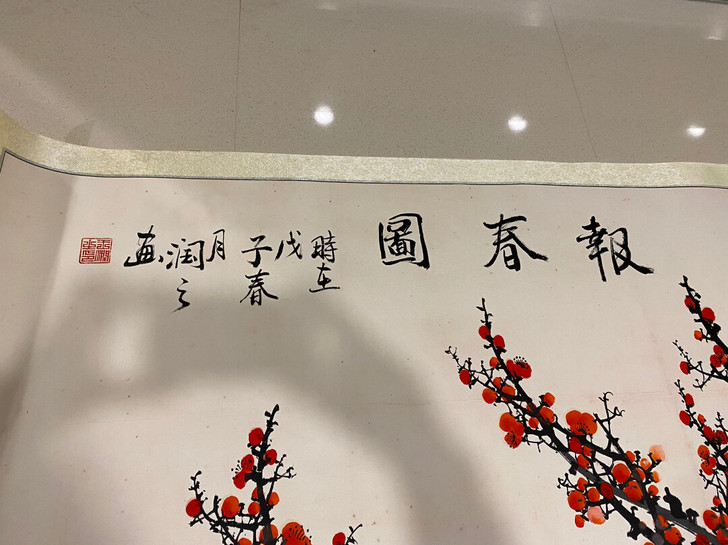 報春圖
時在
戊
子春
月
润之
画